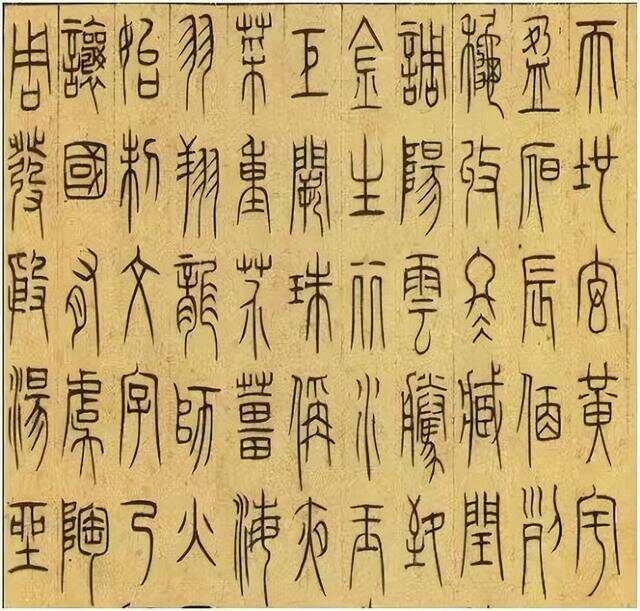 天地玄黃宇
盈昃辰宿列
秋收冬藏閏
調陽雲騰致
金生麗水玉
巨闕珠稱夜
菜重芥薑海
羽翔龍師火
始制文字乃
讓國有虞陶
周發殷湯坐